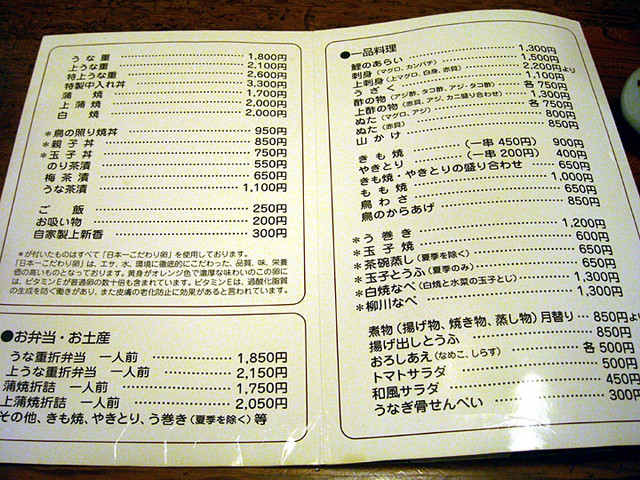 うな重 1,800円
上うな重 2,100円
特上うな重 2,600円
特製中入れ丼 3,300円
蒲焼 1,700円
上蒲焼 2,000円
白焼 2,000円
*鳥の照り焼丼 950円
*親子丼 850円
*玉子丼 750円
のり茶漬 550円
梅茶漬 650円
うな茶漬 1,100円
ご飯 250円
お吸い物 200円
自家製上新香 300円
*が付いたものはすべて「日本一こだわり卵」を使用しております。
「日本一こだわり卵」は、エサ、水、環境に徹底的にこだわった、品質、味、栄養
価の高いものとなっております。黄身がオレンジ色で濃厚な味わいのこの卵に
は、ビタミンEが普通卵の数十倍も含まれています。ビタミンEは、過酸化脂質
の生成を防ぐ働きがあり、また皮膚の老化防止に効果があると言われています。
●お弁当・お土産
うな重折弁当 一人前 1,850円
上うな重折弁当 一人前 2,150円
蒲焼折詰 一人前 1,750円
上蒲焼折詰 一人前 2,050円
その他、きも焼、やきとり、う巻き(夏季を除く)等
●一品料理
鯉のあらい 1,300円
刺身(マグロ、カンパチ) 1,500円
上刺身(上マグロ、白身、赤貝) 2,200円より
うざく 1,100円
酢の物(アジ酢、タコ酢、アジ・タコ酢) 各750円
上酢の物(赤貝、アジ、カニ盛り合わせ) 1,300円
ぬた(マグロ、アジ) 各750円
ぬた(赤貝) 800円
山かけ 850円
きも焼 (一串450円) 900円
やきとり (一串200円) 400円
きも焼・やきとりの盛り合わせ 650円
もも焼 1,000円
鳥わさ 650円
鳥のからあげ 850円
*う巻き 1,200円
*玉子焼 600円
*茶碗蒸し(夏季を除く) 650円
*玉子とうふ(夏季のみ) 650円
*白焼なべ(白焼と水菜の玉子とじ) 1,300円
*柳川なべ 1,300円
煮物(揚げ物、焼き物、蒸し物)月替り 850円より
揚げ出しとうふ 850円
おろしあえ(なめこ、しらす) 各500円
トマトサラダ 500円
和風サラダ 450円
うなぎ骨せんべい 300円